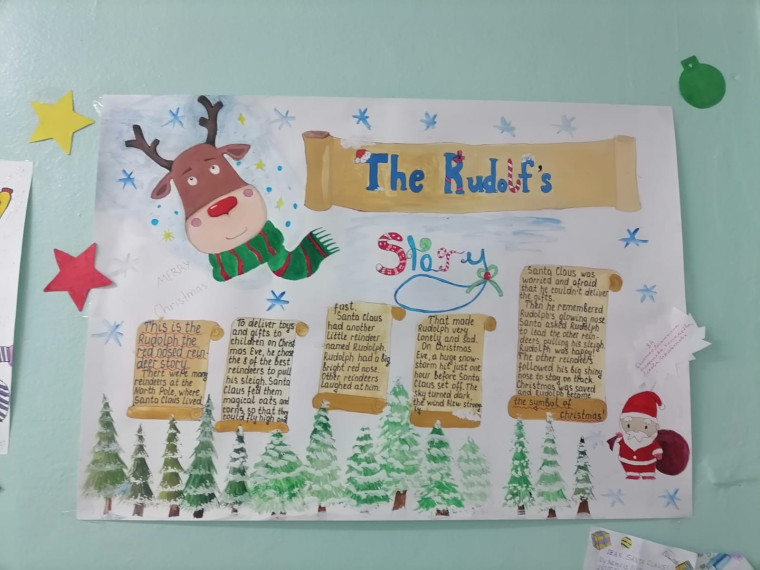 The Rudolf's
Story
MERRY
Christmas
This is the
Rudolph the
red nosed rein-
deer story.
There were many
reindeers at the
North Pole, where
Santa Claus lives.
To deliver toys
and gifts to
children on Christ
mas Eve, he chose
the 8 of the best
reindeers to pull
his sleigh. Santa
Claus fed them
magical oats and
corns, so that they
could fly high and
fast.
Santa Claus
had another
little reindeer
named Rudolph.
Rudolph had a big
bright red nose.
Other reindeers
laughed at him.
That made
Rudolph very
lonely and sad.
On Christmas
Eve, a huge snow-
storm hit just one
hour before Santa
Claus set off. The
sky turned dark,
the wind flew strong
Santa Claus was
worried and afraid
that he couldn't deliver
the gifts.
Then he remembered
Rudolph's glowing nose.
Santa asked Rudolph
to lead the other rein-
deers, pulling his sleigh.
Rudolph was happy!
The other reindeers
followed his big shiny
nose to stay on track.
Christmas was saved
and Rudolph became
the symbol of
Christmas!
DEAR SANTA CLAUS